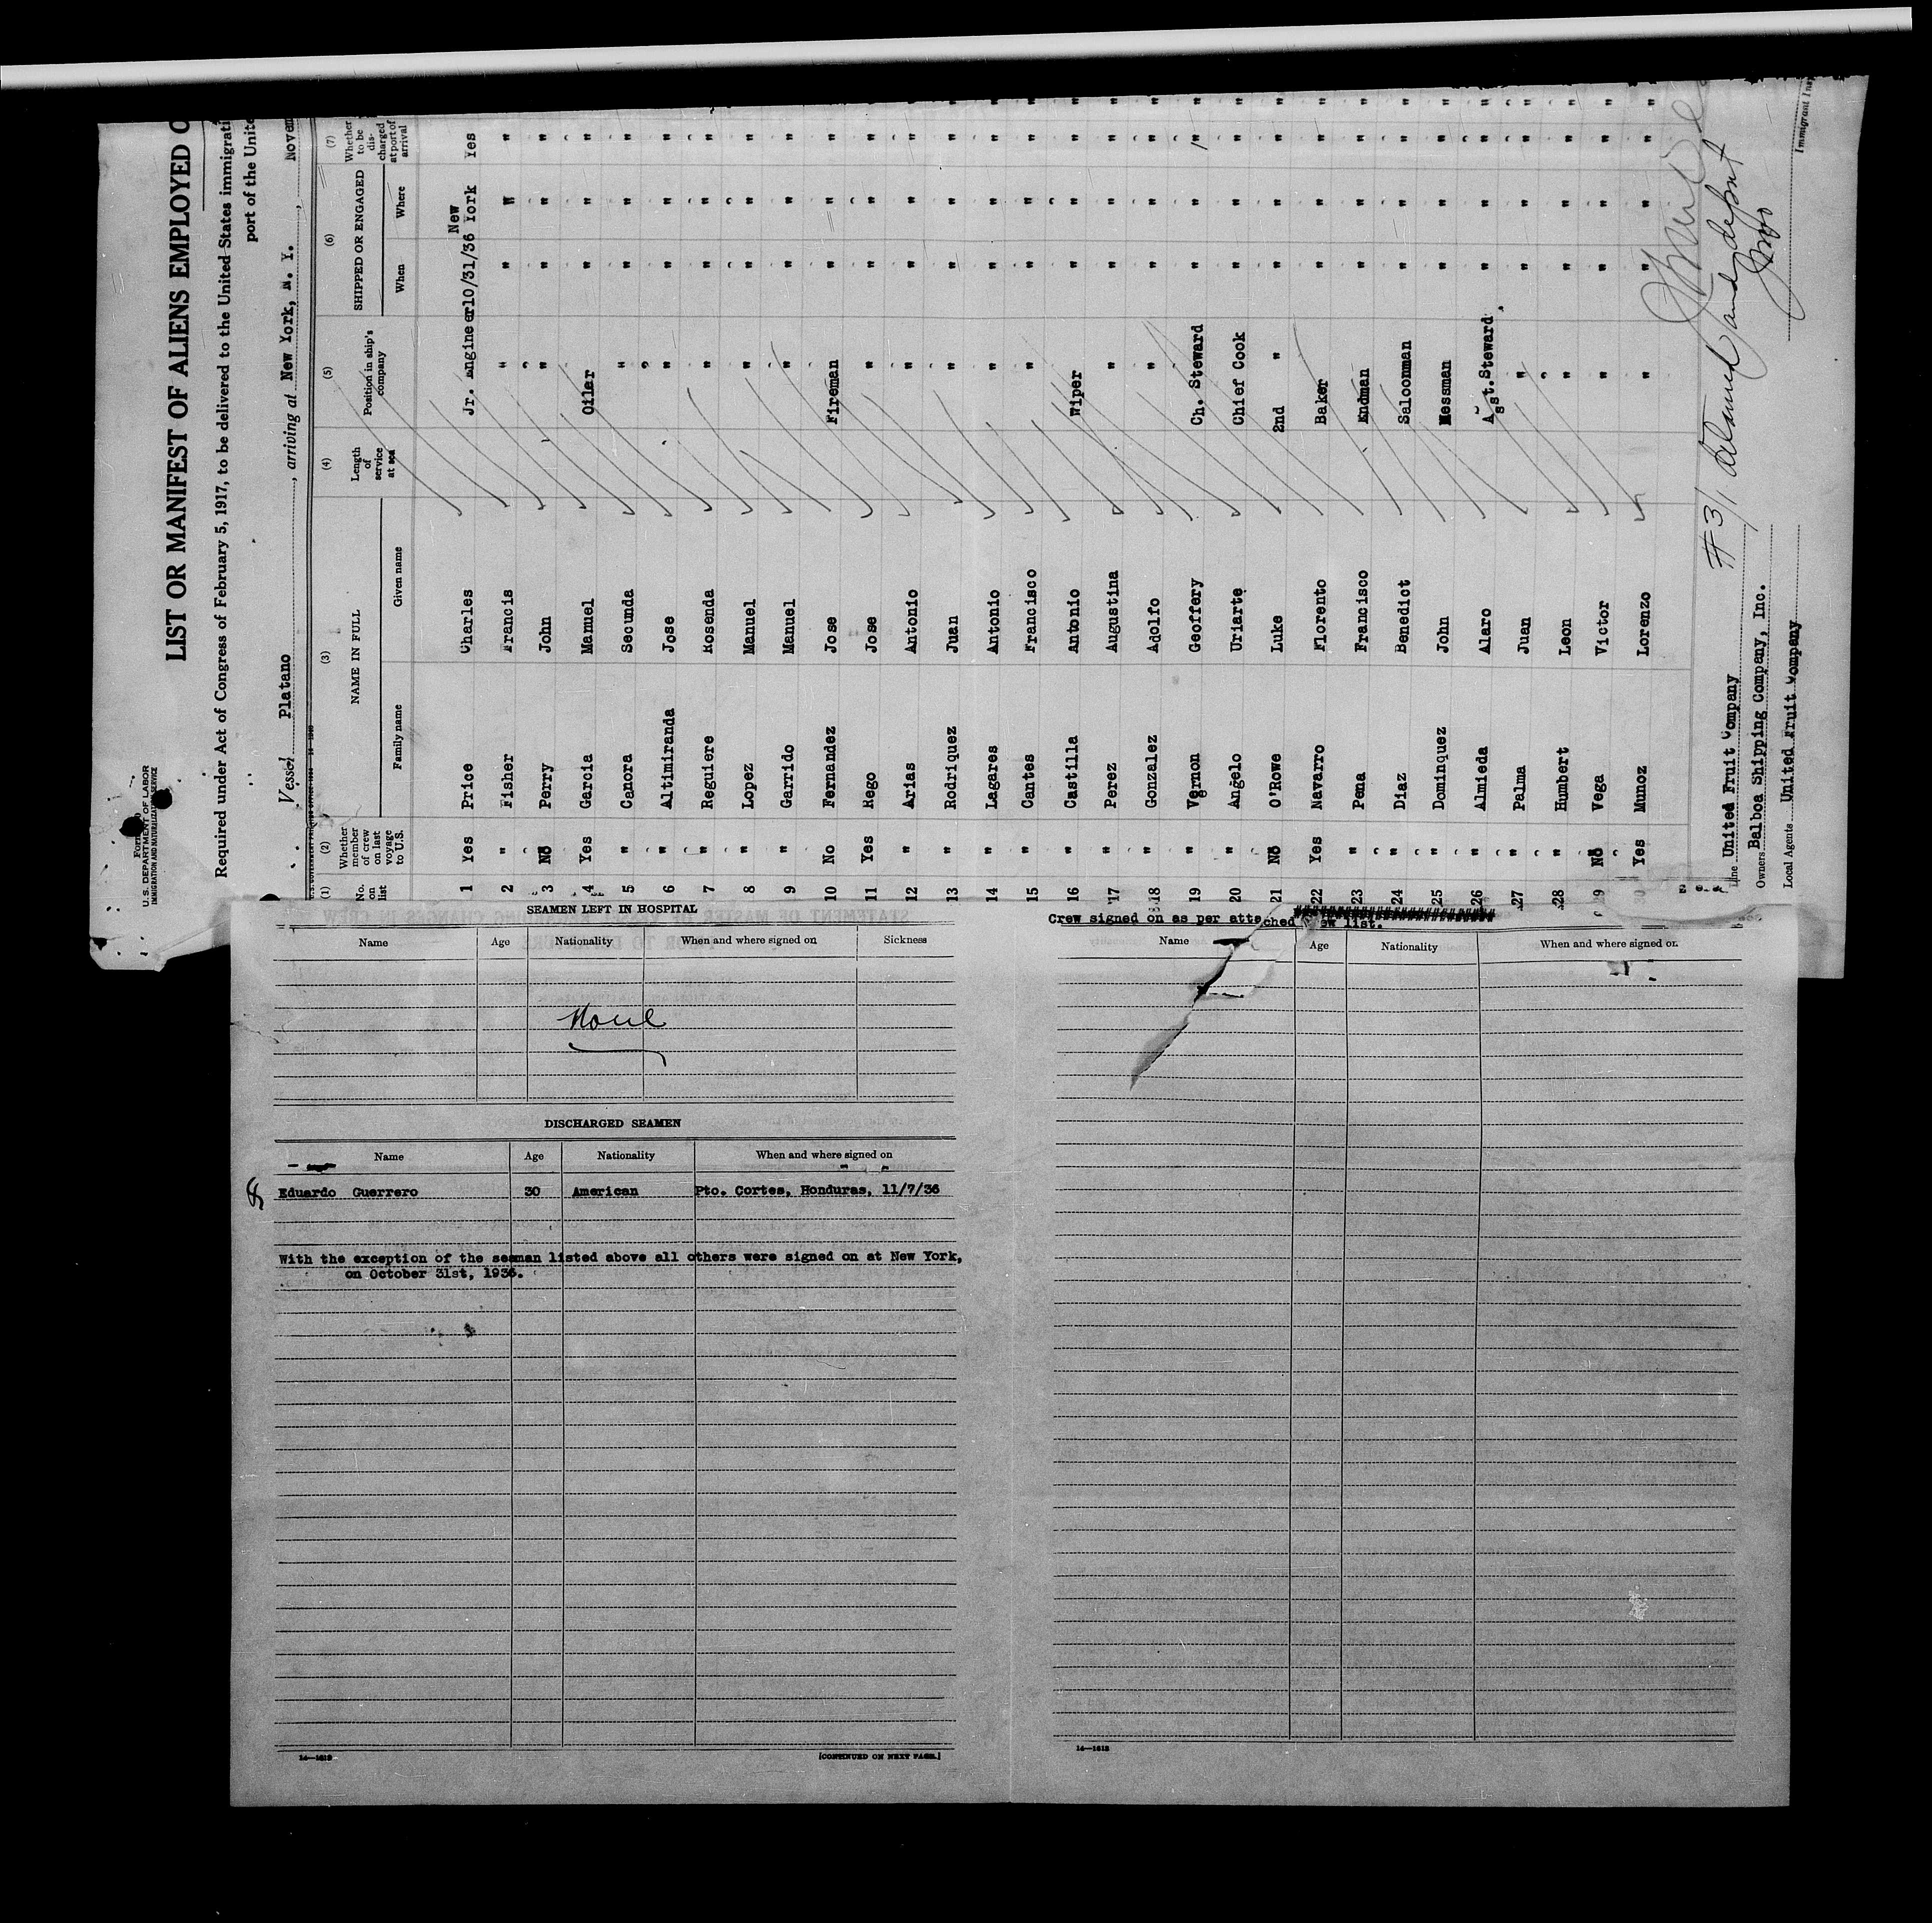 U.S. DEPARTMENT OF LABOR
IMMIGRATION AND NATURALIZATION SERVICE
LIST OR MANIFEST OF ALIENS EMPLOYED O
Required under Act of Congress of February 5, 1917, to be delivered to the United States immigrati
port of the Unite
Vessel Platano, arriving at New York, N. Y., Novem
(1) No. on list (2) Whether member of crew on last voyage to U.S. (3) NAME IN FULL Family name Given name (4) Length of service at sea (5) Position in ship's company (6) SHIPPED OR ENGAGED When Where (7) Whether to be discharged at port of arrival
1 Yes Price Charles Jr. Engineer 10/31/36 New York Yes
2 " Fisher Francis " " " "
3 No Perry John " " " "
4 Yes Garcia Manuel Oiler " " "
5 " Canora Secunda " " " "
6 " Altimiranda Jose " " " "
7 " Reguiere Rosenda " " " "
8 " Lopez Manuel " " " "
9 " Garrido Manuel " " " "
10 No Fernandez Jose Fireman " " "
11 Yes Rego Jose " " " "
12 " Arias Antonio " " " "
13 " Rodriquez Juan " " " "
14 " Lagares Antonio " " " "
15 " Cantes Francisco " " " "
16 " Castilla Antonio Wiper " " "
17 " Perez Augustina " " " "
18 " Gonzalez Adolfo " " " "
19 " Vernon Geoffery Ch. Steward " " "
20 " Angelo Uriarte Chief Cook " " "
21 No O'Rowe Luke 2nd " " " "
22 Yes Navarro Florento Baker " " "
23 " Pena Francisco Endman " " "
24 " Diaz Benedict Saloonman " " "
25 " Dominquez John Messman " " "
26 " Almieda Alaro Asst.Steward " " "
27 " Palma Juan " " " "
28 " Humbert Leon " " " "
29 No Vega Victor " " " "
30 Yes Munoz Lorenzo " " " "
Line United Fruit Company
Owners Balboa Shipping Company, Inc.
Local Agents United Fruit Company
Immigrant Insp
SEAMEN LEFT IN HOSPITAL
Name Age Nationality When and where signed on Sickness
None
DISCHARGED SEAMEN
Name Age Nationality When and where signed on
Eduardo Guerrero 30 American Pto. Cortes, Honduras, 11/7/36
With the exception of the seaman listed above all others were signed on at New York,
on October 31st, 1936.
14—1613
[CONTINUED ON NEXT PAGE.]
Crew signed on as per attached crew list.
Name Age Nationality When and where signed on
14—1613